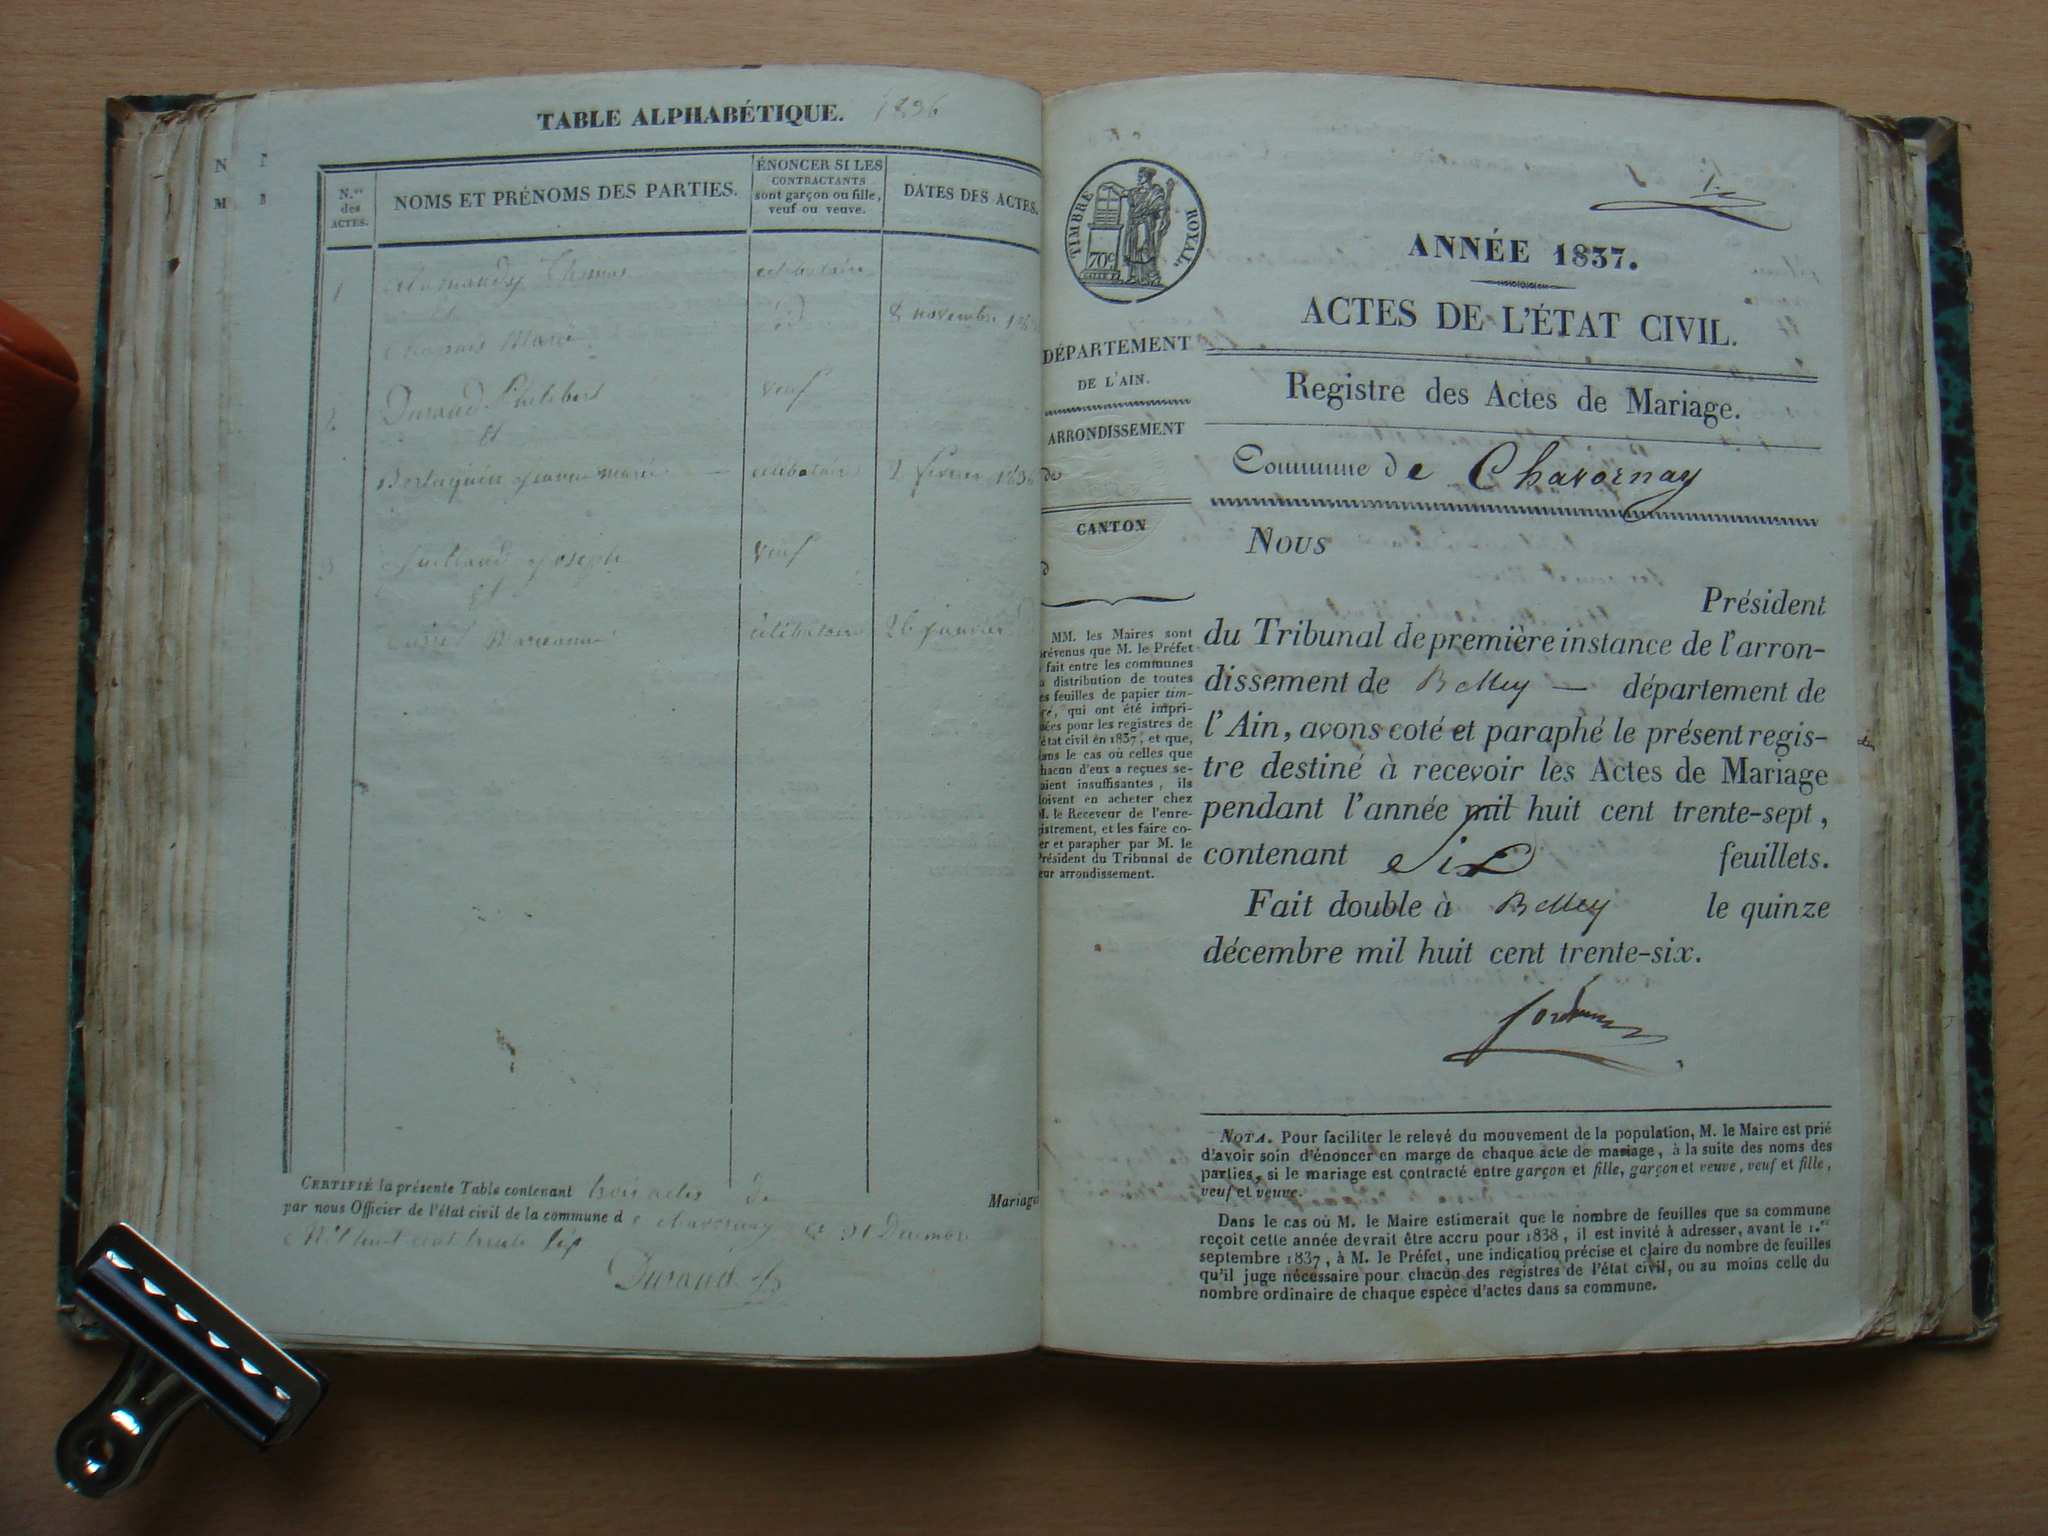 TABLE ALPHABÉTIQUE. 1836
N.os des ACTES.
NOMS ET PRÉNOMS DES PARTIES.
ÉNONCER SI LES
CONTRACTANTS
sont garçon ou fille,
veuf ou veuve.
DATES DES ACTES.
1 Thomas célibataire
id 8 novembre
Marie
2 Durand Philibert veuf
et
marie célibataire février 1836
3 Joseph veuf
et
célibataire 26 janvier
CERTIFIÉ la présente Table contenant trois actes de Mariage
par nous Officier de l'état civil de la commune de chavornay le 31 Decembre
Mil huit cent trente six
Durand
1.
TIMBRE ROYAL.
70c
ANNÉE 1837.
ACTES DE L'ÉTAT CIVIL.
DÉPARTEMENT
DE L'AIN.
ARRONDISSEMENT
de
CANTON
d
Registre des Actes de Mariage.
Commune de Chavornay
Nous
Président
du Tribunal de première instance de l'arron-
dissement de Belley — département de
l'Ain, avons coté et paraphé le présent regis-
tre destiné à recevoir les Actes de Mariage
pendant l'année mil huit cent trente-sept,
contenant Six feuillets.
Fait double à Belley le quinze
décembre mil huit cent trente-six.
MM. les Maires sont
prévenus que M. le Préfet
a fait entre les communes
la distribution de toutes
les feuilles de papier tim-
bré, qui ont été impri-
mées pour les registres de
l'état civil en 1837, et que,
dans le cas où celles que
chacun d'eux a reçues se-
raient insuffisantes, ils
doivent en acheter chez
M. le Receveur de l'enre-
gistrement, et les faire co-
ter et parapher par M. le
Président du Tribunal de
leur arrondissement.
NOTA. Pour faciliter le relevé du mouvement de la population, M. le Maire est prié
d'avoir soin d'énoncer en marge de chaque acte de mariage, à la suite des noms des
parties, si le mariage est contracté entre garçon et fille, garçon et veuve, veuf et fille,
veuf et veuve.
Dans le cas où M. le Maire estimerait que le nombre de feuilles que sa commune
reçoit cette année devrait être accru pour 1838, il est invité à adresser, avant le 1.er
septembre 1837, à M. le Préfet, une indication précise et claire du nombre de feuilles
qu'il juge nécessaire pour chacun des registres de l'état civil, ou au moins celle du
nombre ordinaire de chaque espèce d'actes dans sa commune.